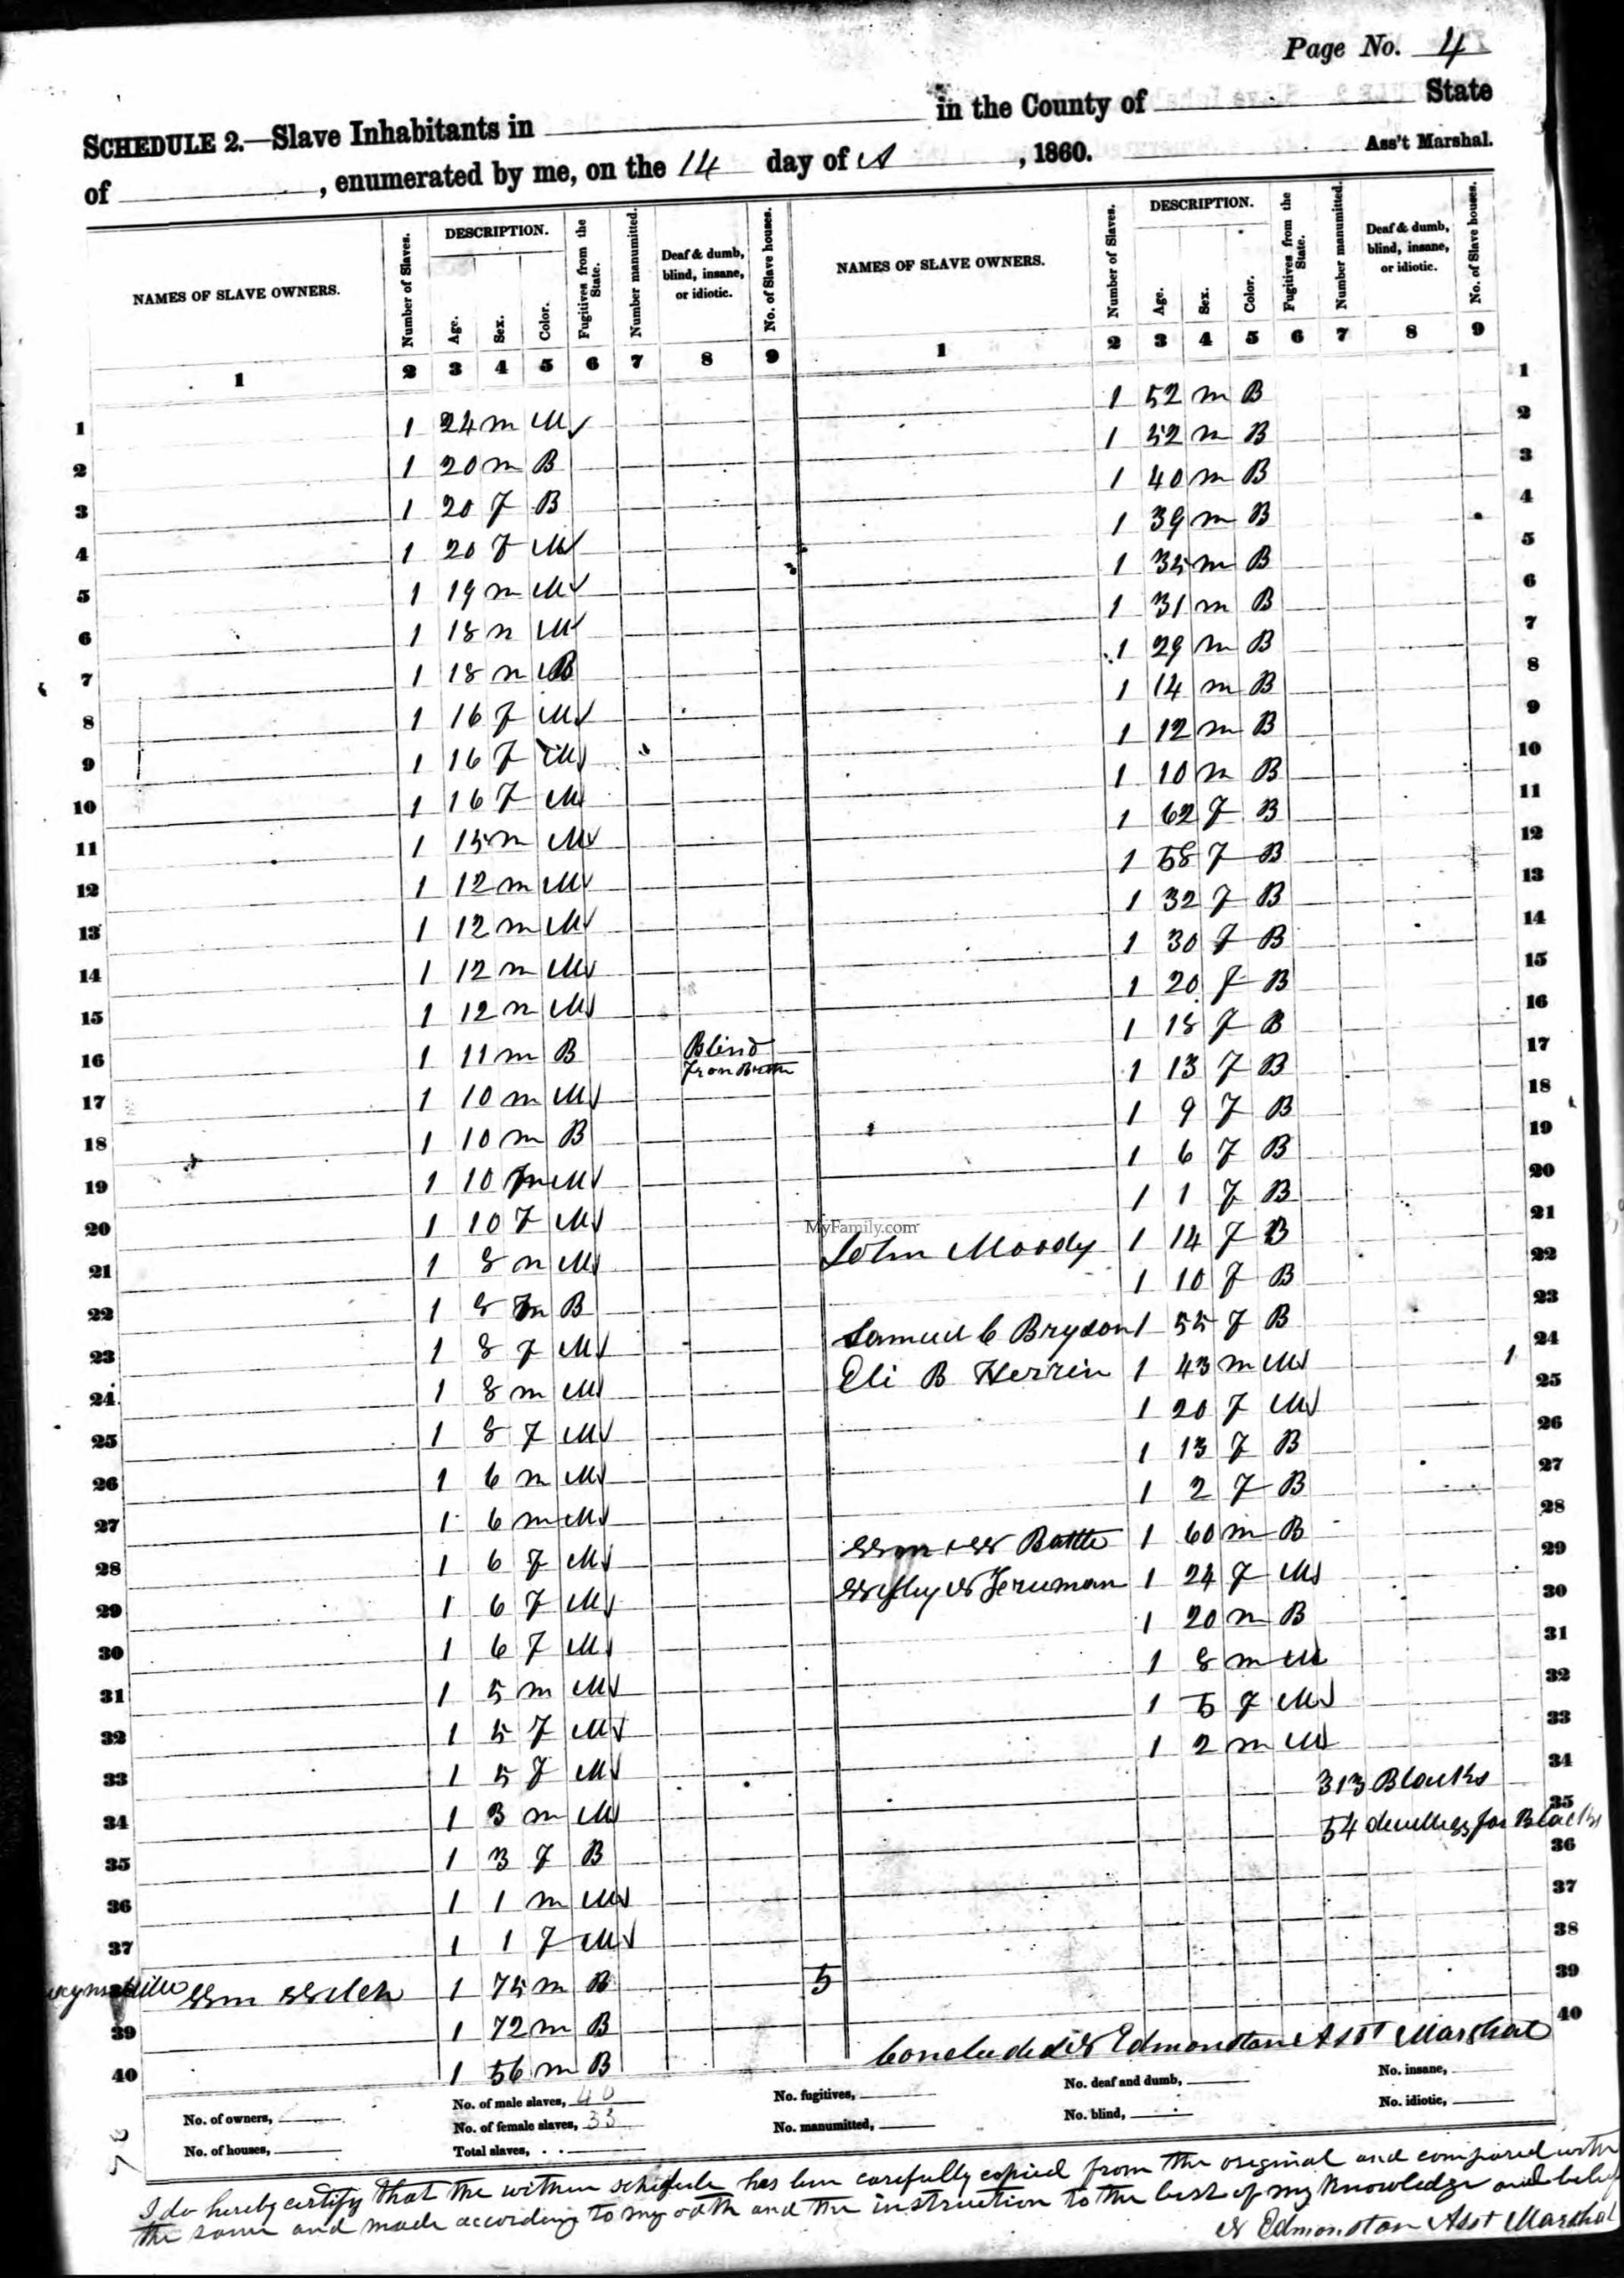 Page No. 4
SCHEDULE 2.—Slave Inhabitants in in the County of State
of , enumerated by me, on the 14 day of A , 1860. Ass't Marshal.
NAMES OF SLAVE OWNERS. Number of Slaves. DESCRIPTION. Age. Sex. Color. Fugitives from the State. Number manumitted. Deaf & dumb, blind, insane, or idiotic. No. of Slave houses.
NAMES OF SLAVE OWNERS. Number of Slaves. DESCRIPTION. Age. Sex. Color. Fugitives from the State. Number manumitted. Deaf & dumb, blind, insane, or idiotic. No. of Slave houses.
1 2 3 4 5 6 7 8 9 1 2 3 4 5 6 7 8 9
1 1 24 m M
2 1 20 m B
3 1 20 f B
4 1 20 f M
5 1 19 m M
6 1 18 m M
7 1 18 m B
8 1 16 f M
9 1 16 f M
10 1 16 f M
11 1 15 m M
12 1 12 m M
13 1 12 m M
14 1 12 m M
15 1 12 m M
16 1 11 m B Blind From Birth
17 1 10 m M
18 1 10 m B
19 1 10 m M
20 1 10 f M
21 1 8 m M
22 1 8 m B
23 1 8 f M
24 1 8 m M
25 1 8 f M
26 1 6 m M
27 1 6 m M
28 1 6 f M
29 1 6 f M
30 1 6 f M
31 1 5 m M
32 1 5 f M
33 1 5 f M
34 1 3 m M
35 1 3 f B
36 1 1 m M
37 1 1 f M
Wm Welch 1 75 m B 5
39 1 72 m B
40 1 56 m B
1 52 m B 1
1 52 m B 2
1 40 m B 3
1 39 m B 4
1 35 m B 5
1 31 m B 6
1 29 m B 7
1 14 m B 8
1 12 m B 9
1 10 m B 10
1 62 f B 11
1 58 f B 12
1 32 f B 13
1 30 f B 14
1 20 f B 15
1 18 f B 16
1 13 f B 17
1 9 f B 18
1 6 f B 19
1 1 f B 20
MyFamily.com
John Moody 1 14 f B 21
1 10 f B 22
Samuel C Bryson 1 55 f B 23
Eli B Herrin 1 43 m M 1 24
1 20 f M 25
1 13 f B 26
1 2 f B 27
Wm W Battle 1 60 m B 28
1 24 f M 29
1 20 m B 30
1 8 m M 31
1 5 f M 32
1 2 m M 33
313 Blacks 34
54 dwellings for Blacks 35
36
37
38
39
40
Concluded W Edmonston Asst Marshal
No. of owners, No. of male slaves, 40 No. fugitives, No. deaf and dumb, No. insane,
No. of houses, No. of female slaves, 33 No. manumitted, No. blind, No. idiotic,
Total slaves,
I do hereby certify that the within schedule has been carefully copied from the original and compared with
the same and made according to my oath and the instruction to the best of my knowledge and belief
W Edmonston Asst Marshal